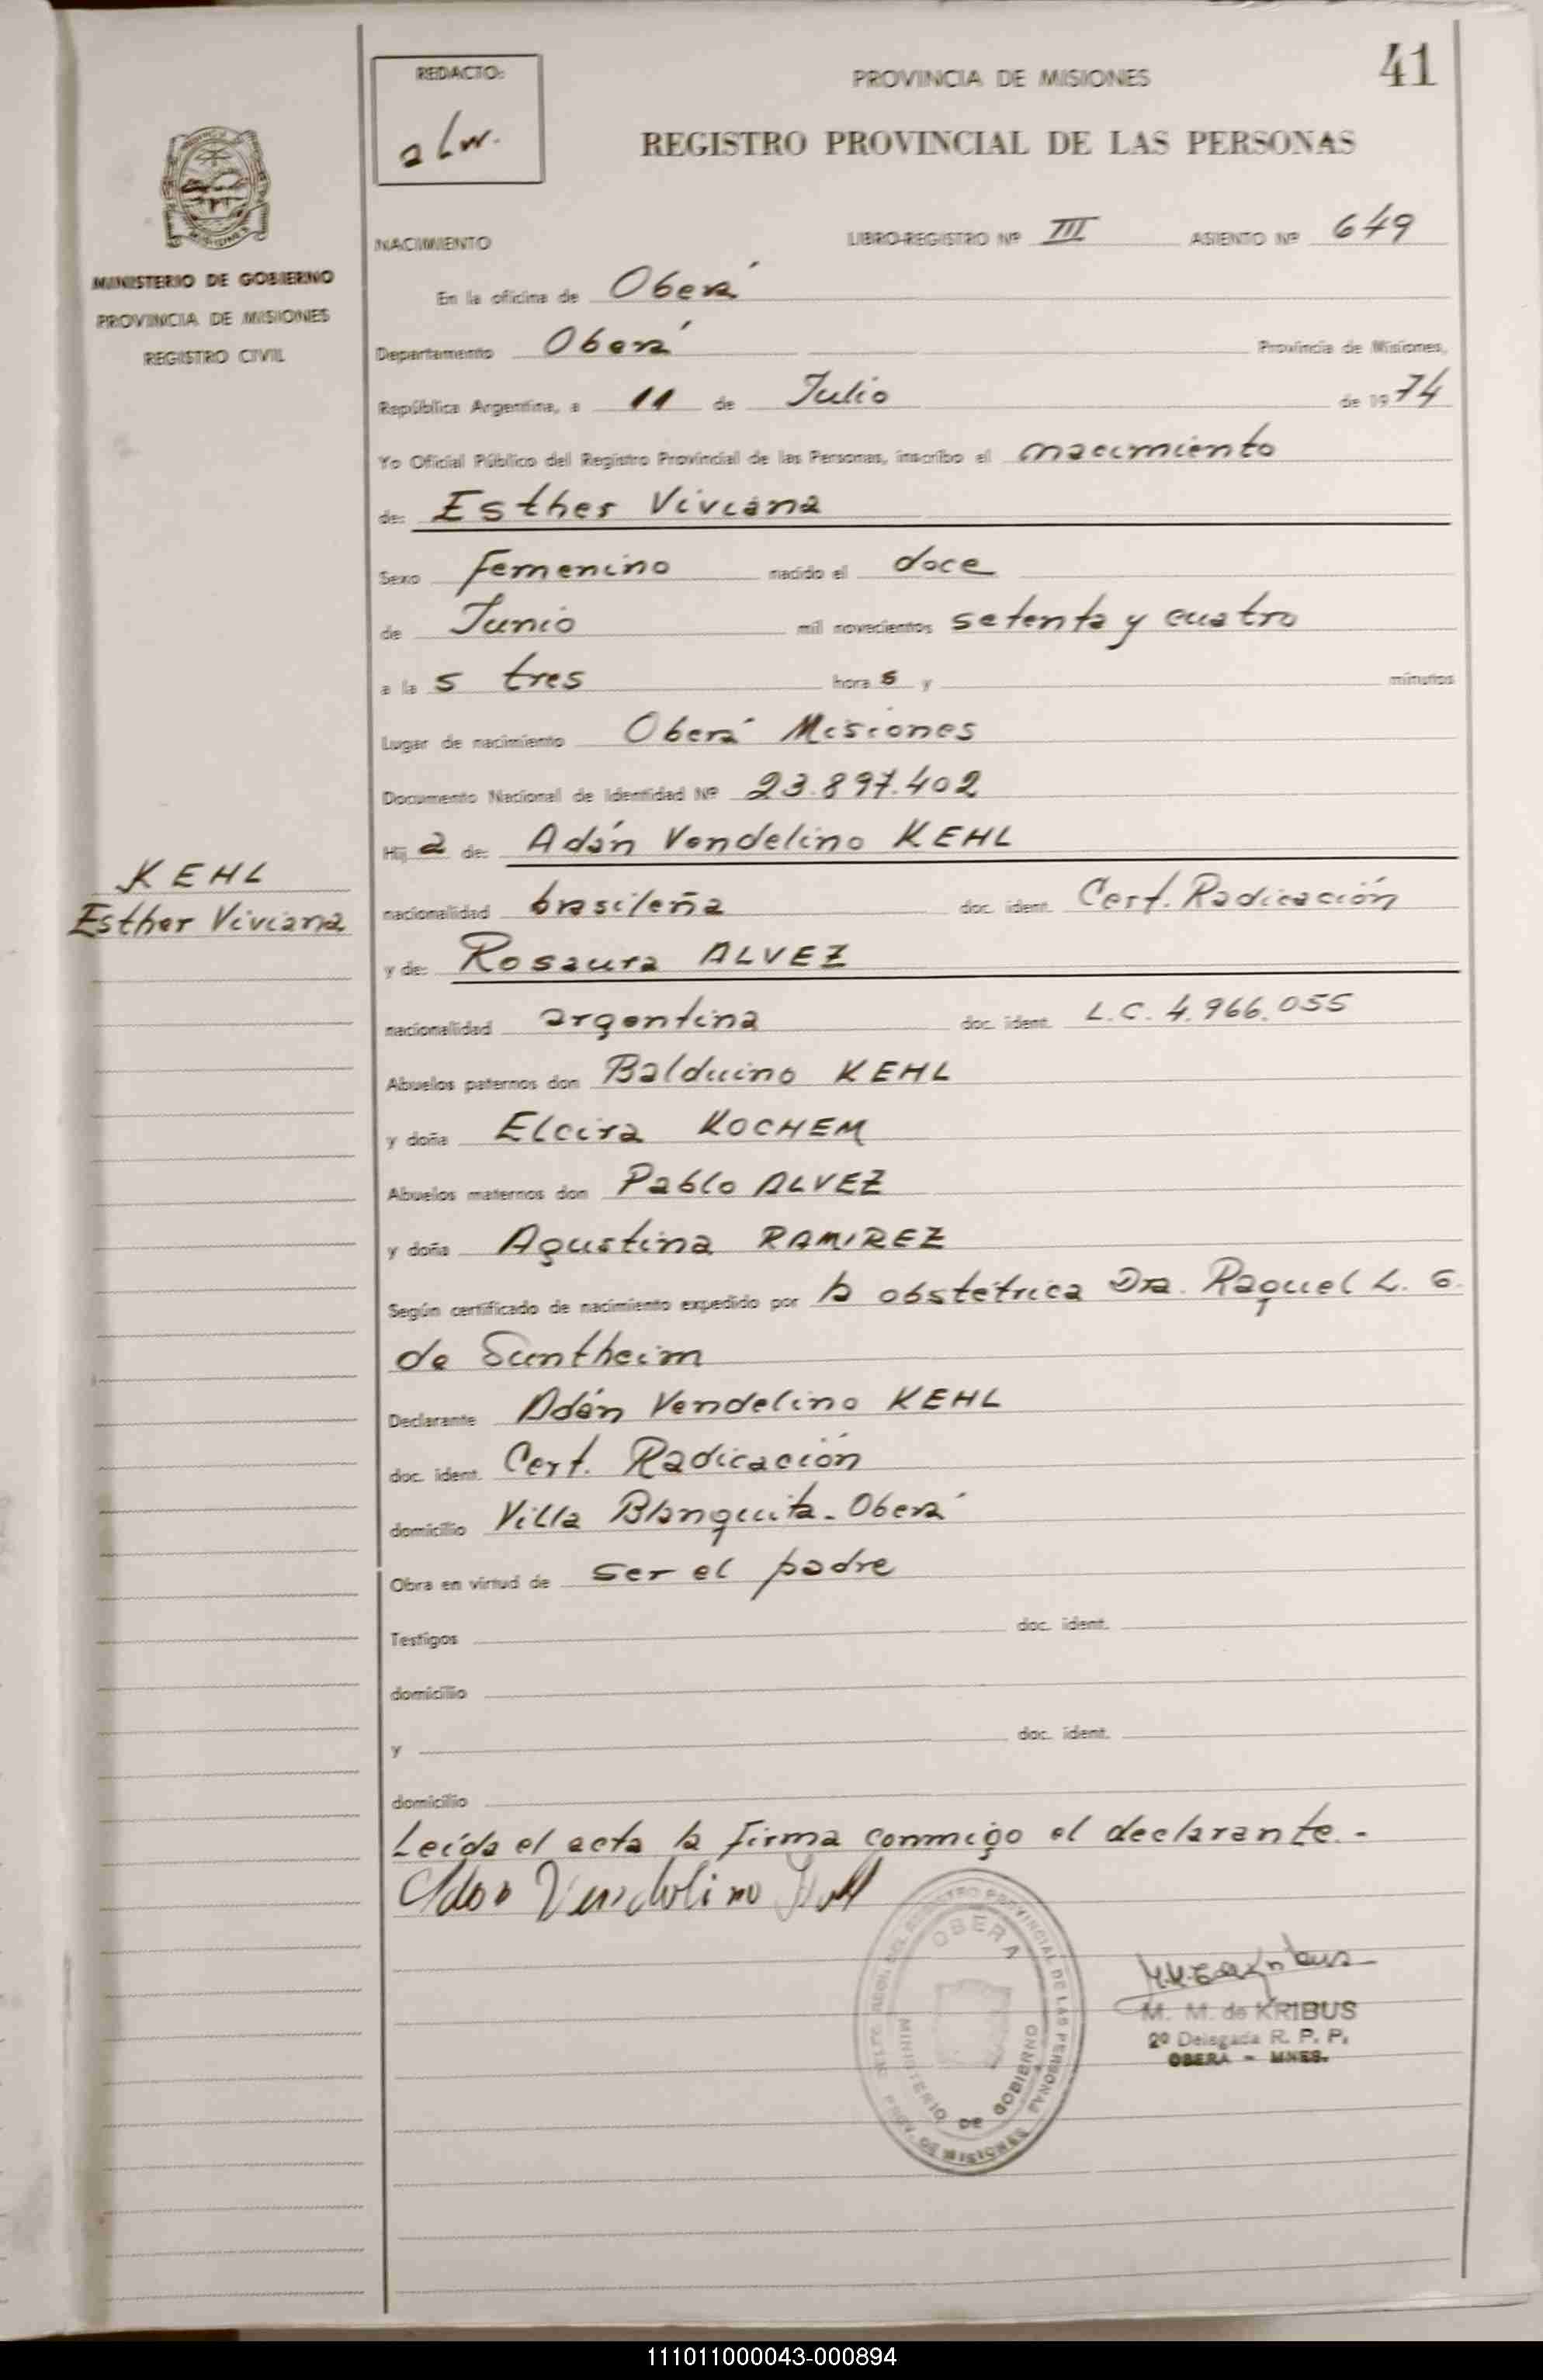 41
REDACTO:
PROVINCIA DE MISIONES
REGISTRO PROVINCIAL DE LAS PERSONAS
MINISTERIO DE GOBIERNO
PROVINCIA DE MISIONES
REGISTRO CIVIL
NACIMIENTO LIBRO-REGISTRO Nº III ASIENTO Nº 649
En la oficina de Oberá
Departamento Oberá Provincia de Misiones,
República Argentina, a 11 de Julio de 1974
Yo Oficial Público del Registro Provincial de las Personas, inscribo el nacimiento
de: Esther Viviana
Sexo femenino nacido el doce
de Junio mil novecientos setenta y cuatro
a la s tres hora s y minutos
Lugar de nacimiento Oberá Misiones
Documento Nacional de Identidad Nº 23.897.402
Hij a de: Adán Vendelino KEHL
KEHL
Esther Viviana
nacionalidad brasileña doc. ident. Cert. Radicación
y de: Rosaura ALVEZ
nacionalidad argentina doc. ident. L.C. 4.966.055
Abuelos paternos don Balduino KEHL
y doña Elcira KOCHEM
Abuelos maternos don Pablo ALVEZ
y doña Agustina RAMIREZ
Según certificado de nacimiento expedido por la obstétrica Dra. Raquel L. G.
de Suntheim
Declarante Adán Vendelino KEHL
doc. ident. Cert. Radicación
domicilio Villa Blanquita - Oberá
Obra en virtud de ser el padre
Testigos doc. ident.
domicilio
y doc. ident.
domicilio
Leída el acta la firma conmigo el declarante.-
Adan Vendolino Kehl
REGISTRO PROVINCIAL DE LAS PERSONAS
OBERA
MINISTERIO DE GOBIERNO
PROV. DE MISIONES
M. M. de KRIBUS
2º Delegada R. P. P.
OBERA - MNES.
111011000043-000894